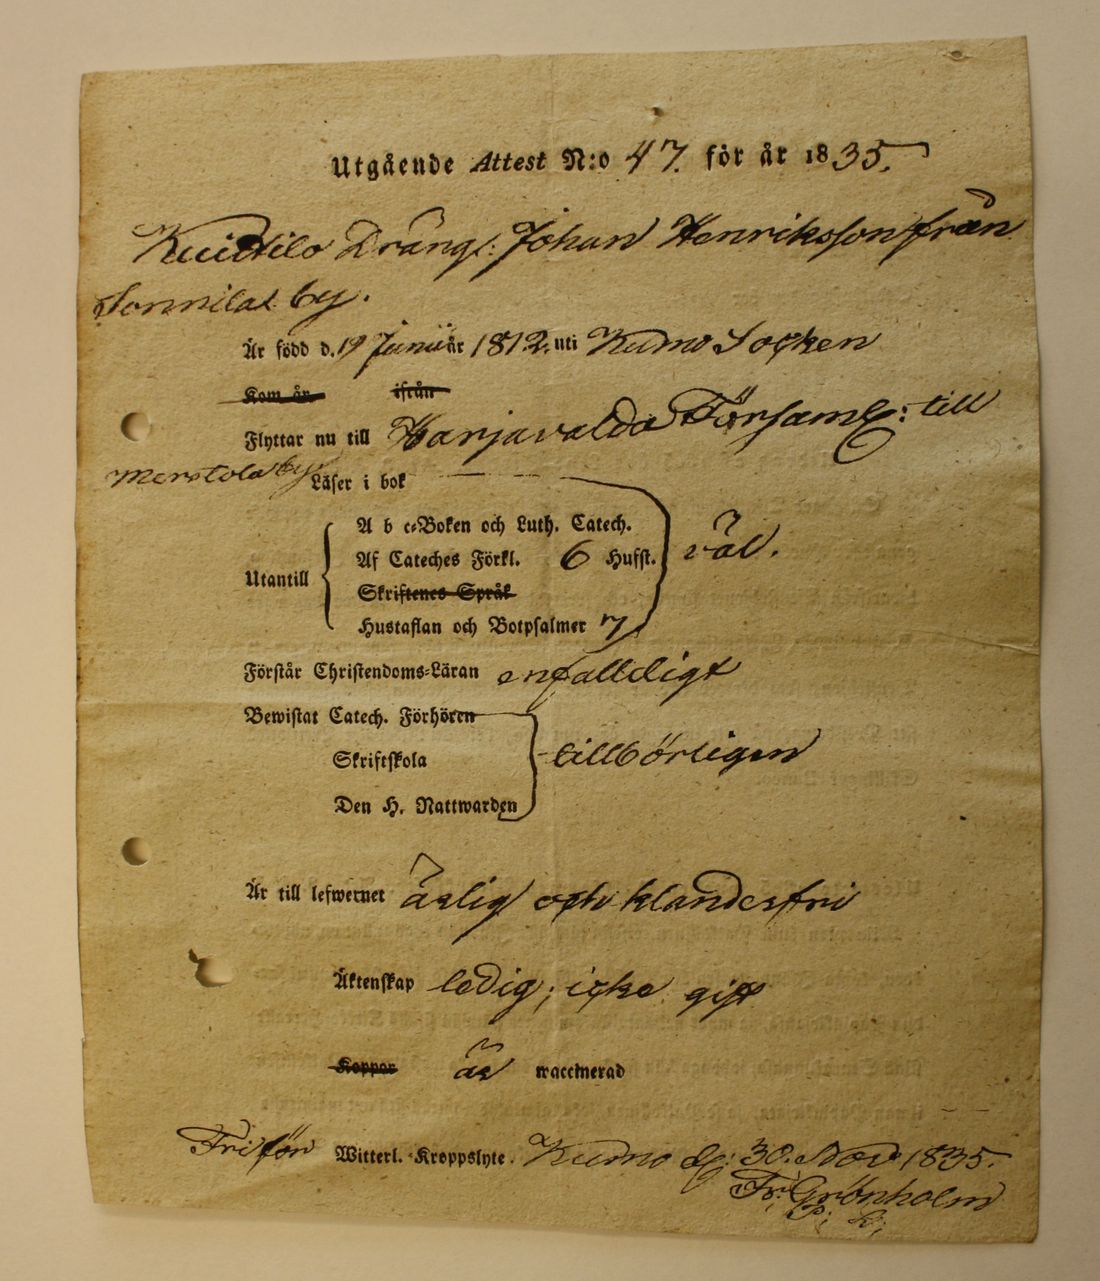 Utgående Attest N:o 47. för år 1835.
Drängs: Johan Henriksson från
Sonnilas by.
Är född d. 19 Junii år 1812. uti Kumo Socken
Kom år ifrån
Flyttar nu till Harjavalda Församl: till
Merstola by
Läser i bok
A b c-Boken och Luth. Catech.
Af Cateches Förkl. 6 Hufst. väl.
Utantill
Skriftenes Språk
Hustaflan och Botpsalmer 7
Förstår Christendoms-Läran enfalldigt
Bewistat Catech. Förhören
Skriftskola tillbörligen
Den H. Nattwarden
Är till lefwernet ärlig och klanderfri
Äktenskap ledig; icke gift
Koppor är waccinerad
Fri för Witterl. Kroppslyte. Kumo d: 30. Nov 1835.
Fr: Grönholm